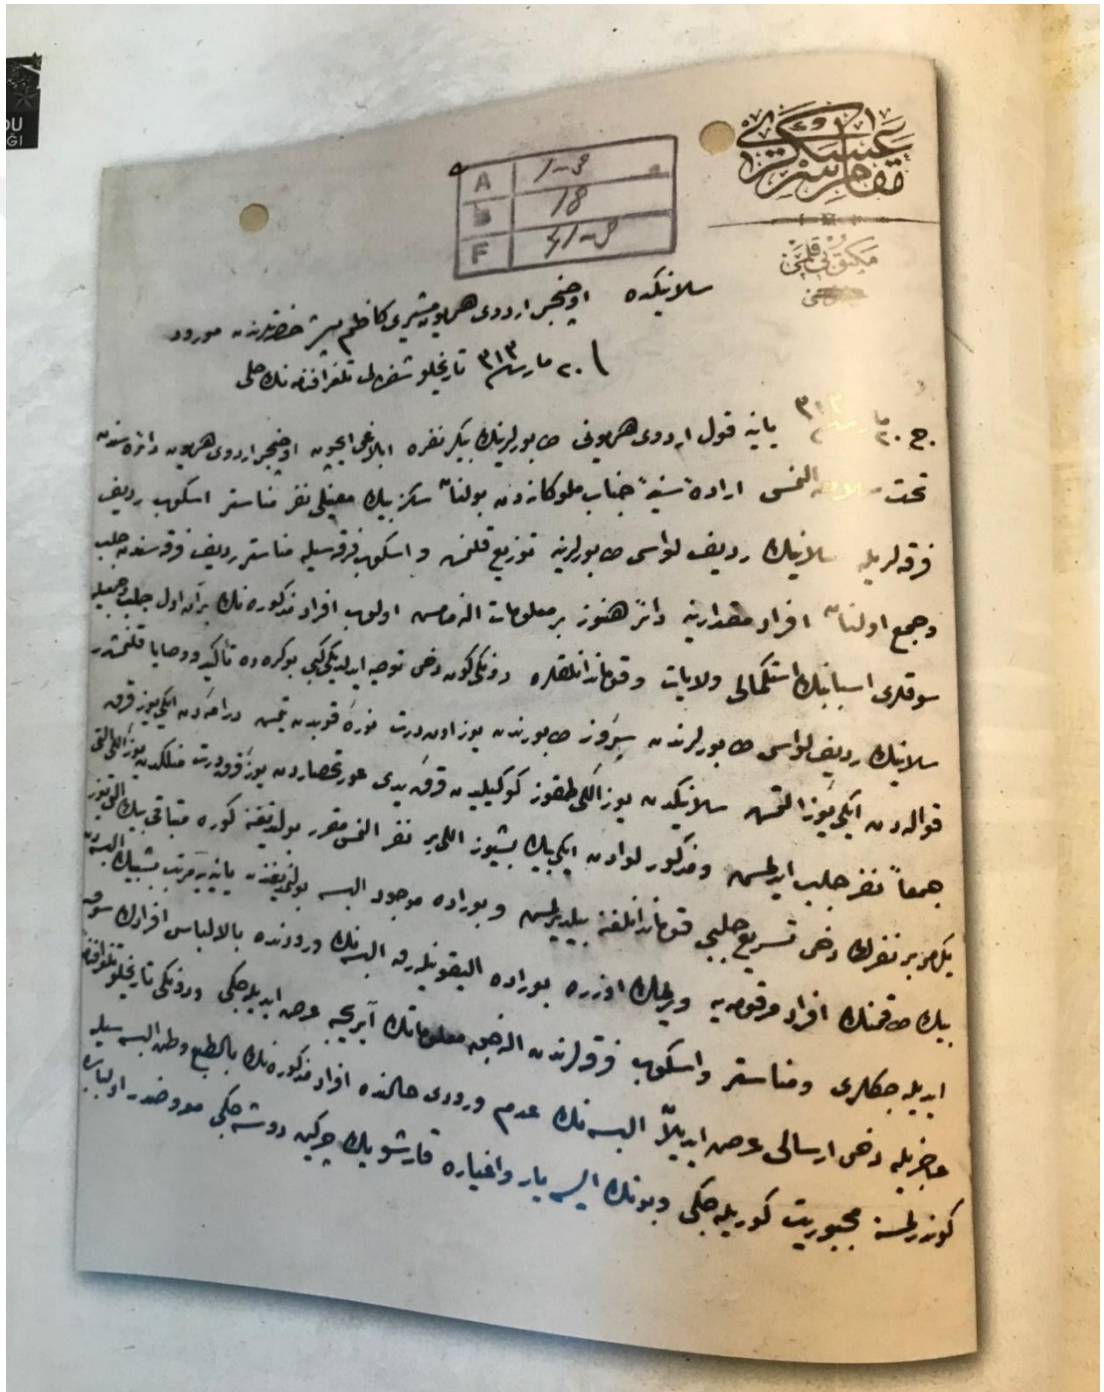 DU
GI
مقام سر عسكرى
مكتوبى قلمى
A 1-3
b 18
F 41-3
سلانيكده اوچنجى اردوى همايون مشيرى كاظم پاشا حضرتلرندن مورود
٢٠ مارت ٣١٣ تاريخلو شفره‌لى تلغرافنامه‌نك حلى
ج ٢٠ مارت ٣١٣ يانيه قول اردوى همايونى طابورلرينك بيكر نفره ابلاغى ايچون اوچنجى اردوى همايون دائره‌سندن
تحت سلاحه النمسى اراده سنيه جناب ملوكانه‌دن بولنان سكز بيك نفر مناستر اسكوب رديف
فرقه‌لريله سلانيك رديف لواسى طابورلرينه توزيع قلنمش و اسكوب فرقه‌سيله مناستر رديف فرقه‌سندن جلب
وجمع اولنان افراد مقدارينه دائر هنوز بر معلومات النه‌مامش اولوب افراد مذكوره‌نك بر آن اول جلب وجمعيله
سوقلرى اسبابنك استكمالى ولايات وقوماندانلقلره دونكى كون دخى توصيه ايدلديكى كبى بوكره ده تأكيد ووصايا قلنمشدر
سلانيك رديف لواسى طابورلرندن سيروز طابورندن يوز اون درت درامه‌دن ايكيوز قرق
قواله‌دن ايكيوز التمش سلانيكدن يوز اللى طقوز كوكيليدن قرق يدى عورتحصاردن يوز قرق درت يوز اللى التى
جمعاً نفر جلب ايدلمش ومذكور لوادن ايكى بيك بشيوز اللى بر نفر النمسى مقرر بولنديغنه كوره متباقى بيك
يكرمى بر نفرك دخى تسريع جلبى قوماندانلغه بيلديرلمش وبوراده موجود البسه بولنمديغندن يانيه‌يه مرتب بشبيك البسه‌دن
بيك طاقمنك افراد مرقومه‌يه ويرلمك اوزره بوراده اليقونيله‌رق البسه‌نك ورودنده بالالباس افرادك سوق
ايديله‌جكلرى ومناستر واسكوب فرقه‌لرندن النه‌جق معلوماتك آيريجه عرض ايديله‌جكى ودونكى تاريخلو تلغرافنامه
عاجزيله دخى ارسالى عرض ايديلان البسه‌نك عدم ورودى حالنده افراد مذكوره‌نك بالطبع وطن البسه‌سيله
كوندرلمسنه مجبوريت كوريله‌جكى وبونك ايسه يار واغياره قارشو پك چركين دوشه‌جكى معروضدر اولبابده